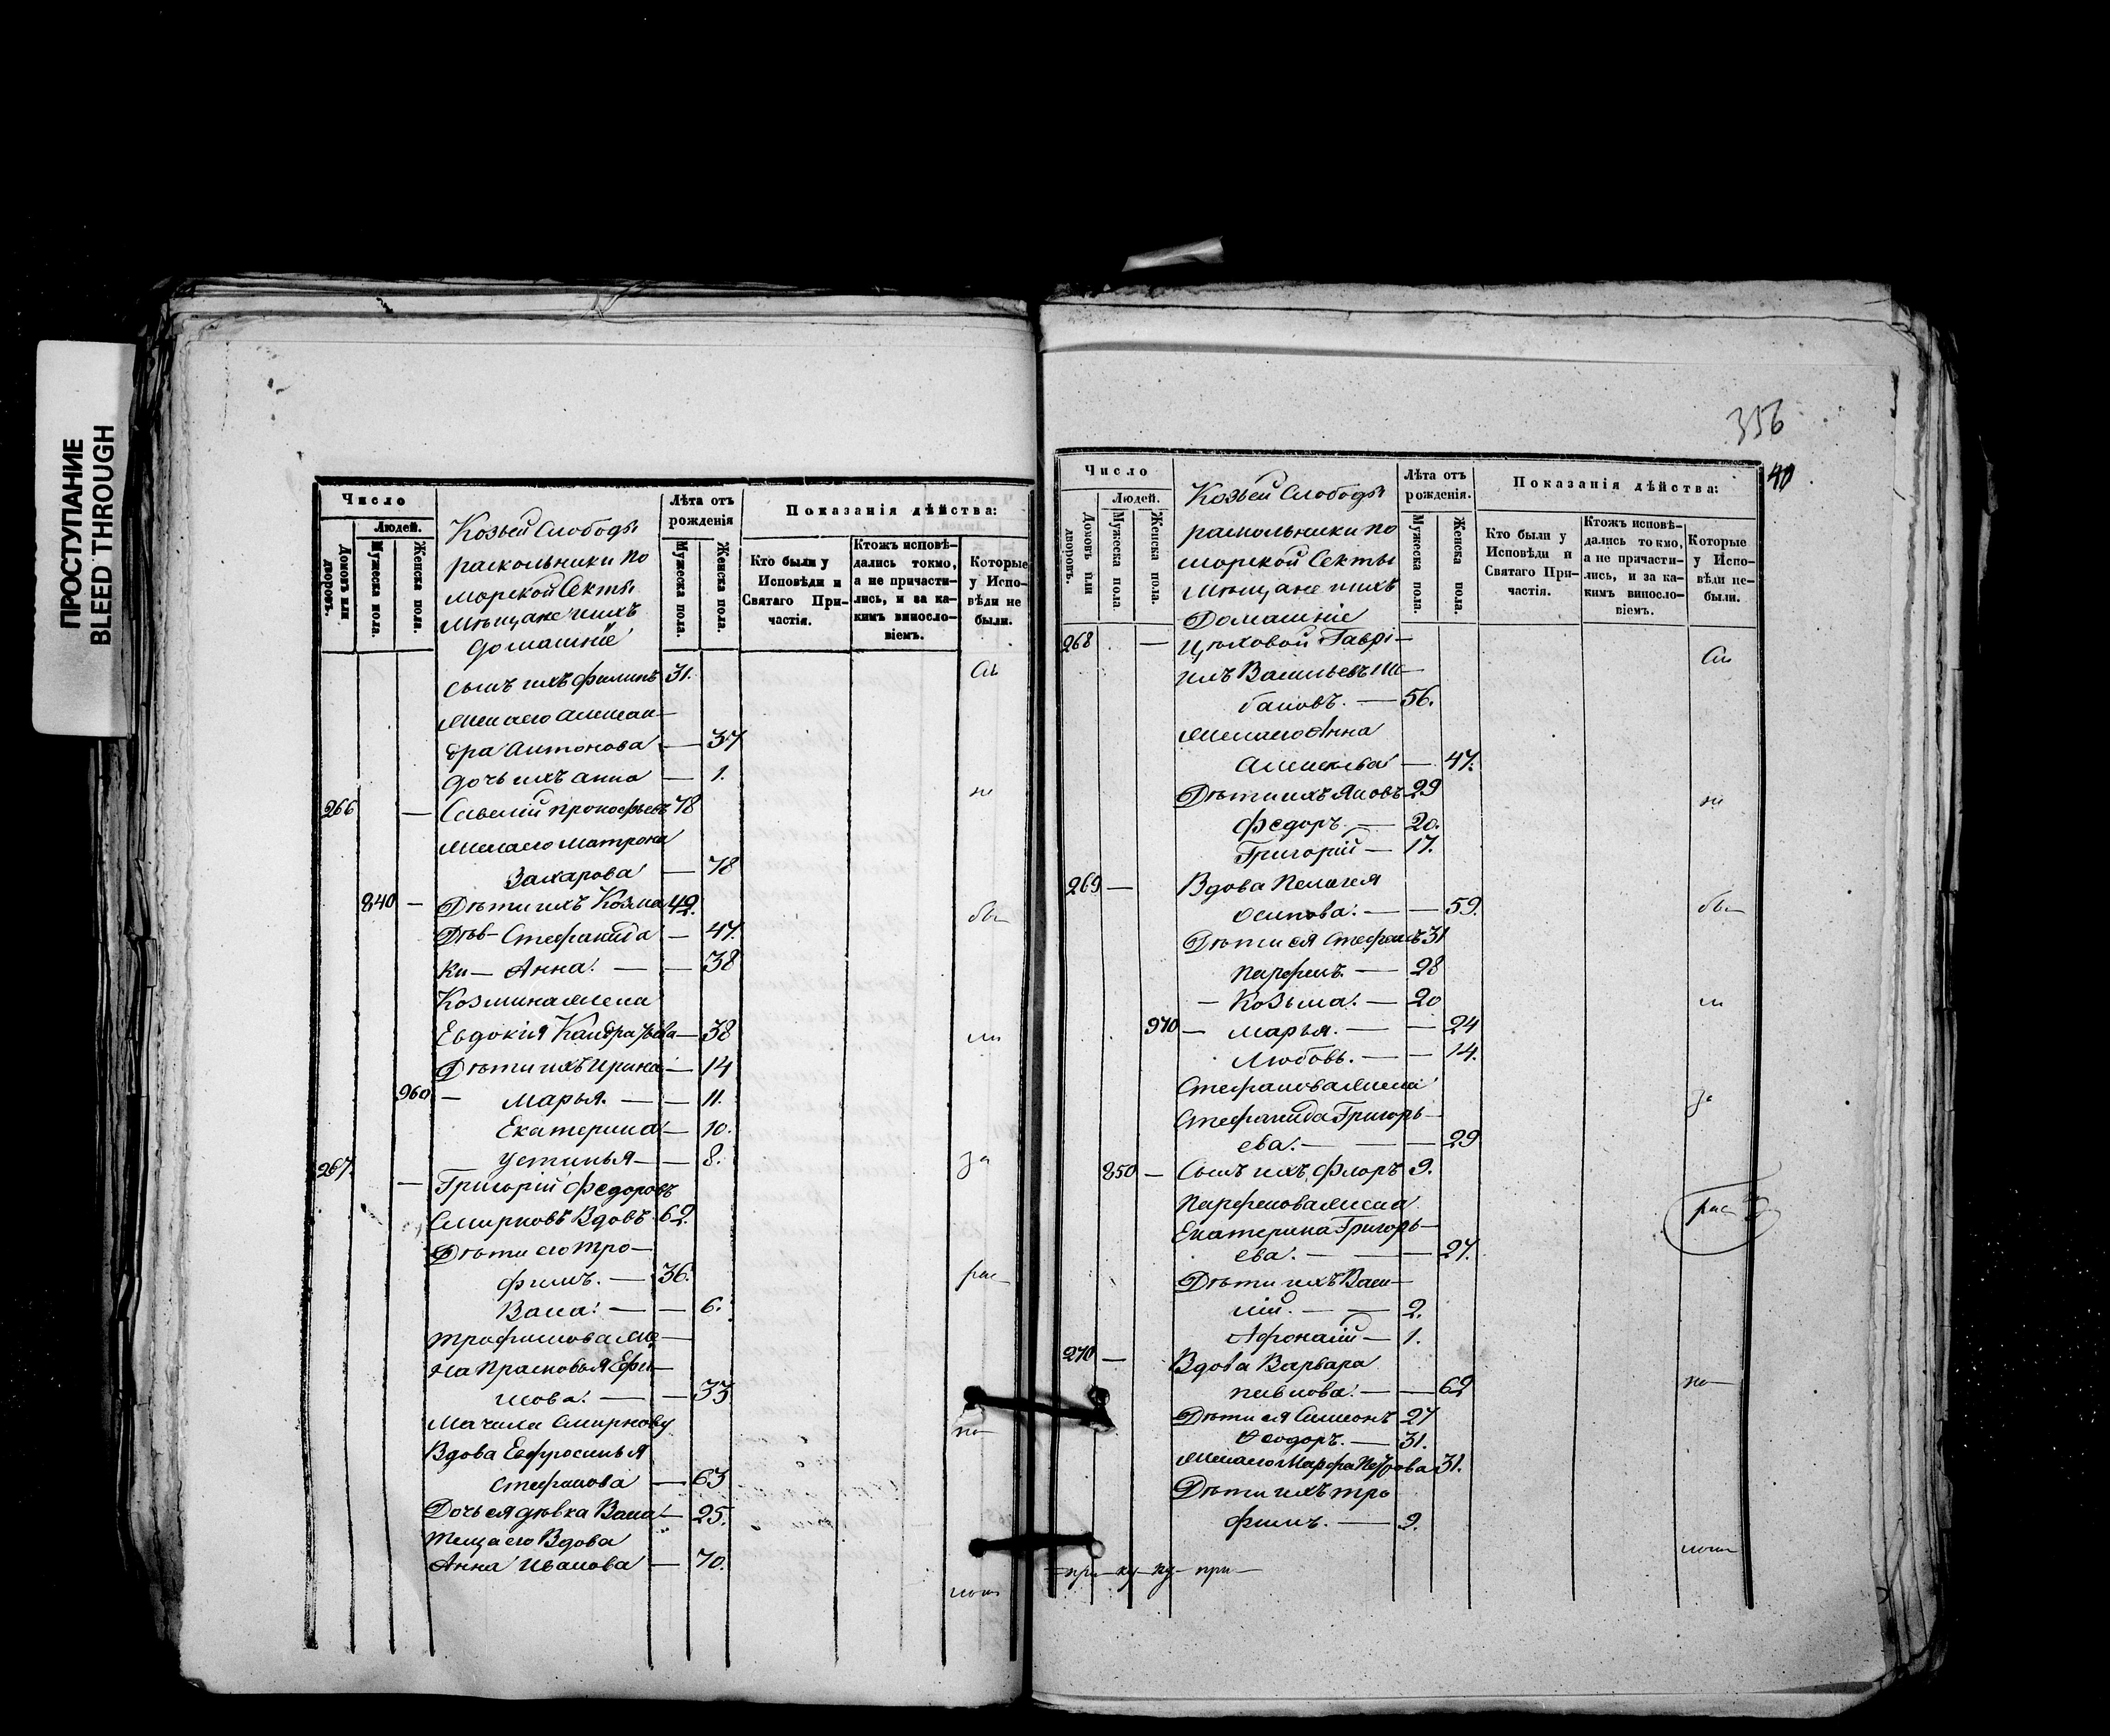 ПРОСТУПАНИЕ
BLEED THROUGH
Число
Людей.
Домовъ или дворовъ.
Мужеска пола.
Женска пола.
Козьей Слободы
раскольники по
морской Секты
Мѣщане и ихъ
домашніе
Лѣта отъ рожденія
Мужеска пола.
Женска пола.
Показанія дѣйства:
Кто были у Исповѣди и Святаго При-
частія.
Ктожъ исповѣ-
дались токмо,
а не причасти-
лись, и за ка-
кимъ виносло-
віемъ.
Которые
у Испо-
вѣди не
были.
сынъ ихъ Филипъ 31.
Жена его Алексан—
дра Антонова — 37
дочь ихъ Анна — 1.
266 — Савелій Прокофьевъ 78
Жена его Матрона
Захарова — 78
840 — Дѣти ихъ Козма 42.
Дѣв— Стефанида — 47.
ки — Анна. — — 38
Козмина жена
Евдокія Кандратьева — 38
не
бы—
Дѣти ихъ Ирина — 14
960 — Марья. — — 11.
Екатерина — 10.
Устинья — — 8.
за
267. — Григорій Федоровъ
Смирновъ Вдовъ 62.
Дѣти его Тро—
фимъ. — 36.
рас—
Васа. — — 6.
Трофимова же—
на Прасковья Ефи—
мова. — — 33
Мачиха Смирнову
Вдова Евфросинья
по—
Стефанова — 63
Дочь ея дѣвка Васа — 25.
Теща его Вдова
Анна Иванова — 70.
356
40
Число
Людей.
Домовъ или дворовъ.
Мужеска пола.
Женска пола.
Козьей Слободы
раскольники по
морской Секты
Мѣщане и ихъ
Домашніе
Лѣта отъ рожденія.
Мужеска пола.
Женска пола.
Показанія дѣйства:
Кто были у
Исповѣди и
Святаго При-
частія.
Ктожъ исповѣ-
дались токмо,
а не причасти-
лись, и за ка-
кимъ виносло-
віемъ.
Которые
у Испо-
вѣди не-
были.
268 — Цѣховой Гаврі—
илъ Васильевъ Ша—
бановъ. — 56.
Жена его Анна
Алексѣева — 47.
Дѣти ихъ Яковъ 29
не
Федоръ. — 20.
Григорій — 17.
269 — Вдова Пелагея
Осипова. — — 59.
бы—
Дѣти ея Стефанъ 31
Парфенъ. — 28
— Козьма. — 20
970 — Марья. — — 24
Любовь. — — 14.
Стефанова жена
за
Стефанида Григорь—
ева. — — 29
850 — Сынъ ихъ Флоръ 9.
Парфенова жена
рас—
Екатерина Григорь—
ева. — — 27.
Дѣти ихъ Васи—
лій. — — 2.
Афонасій — 1.
270 — Вдова Варвара
Павлова. — — 62
по—
Дѣти ея Симеонъ 27
Ѳеодоръ. — 31.
Жена его Марфа Петрова 31.
Дѣти ихъ Тро
фимъ. — 9.